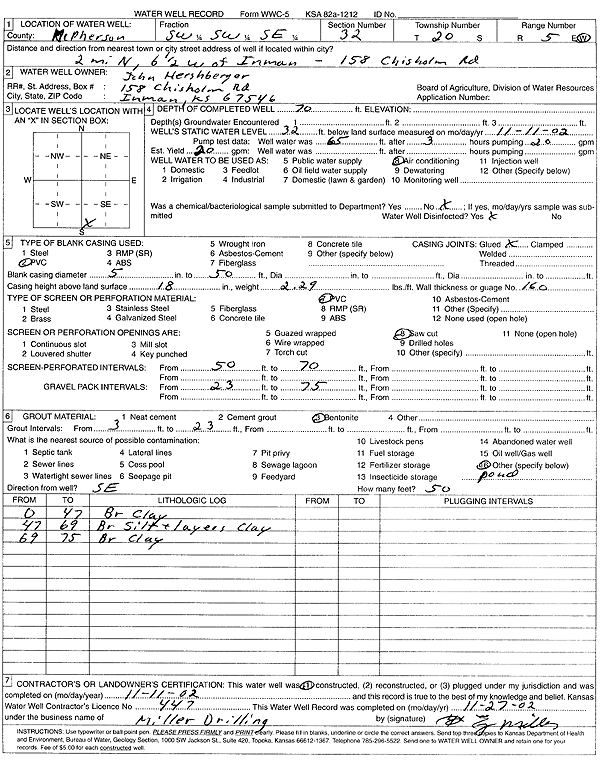 WATER WELL RECORD Form WWC-5 KSA 82a-1212 ID No.
1 LOCATION OF WATER WELL: Fraction Section Number Township Number Range Number
County: McPherson SW ¼ SW ¼ SE ¼ 32 T 20 S R 5 E(W)
Distance and direction from nearest town or city street address of well if located within city?
2 mi N, 6 ½ w of Inman - 158 Chisholm Rd
2 WATER WELL OWNER: John Hershberger
RR#, St. Address, Box # : 158 Chisholm Rd Board of Agriculture, Division of Water Resources
City, State, ZIP Code : Inman, KS 67546 Application Number:
3 LOCATE WELL'S LOCATION WITH AN "X" IN SECTION BOX:
N
NW NE
W E
SW SE
X
S
4 DEPTH OF COMPLETED WELL 70 ft. ELEVATION:
Depth(s) Groundwater Encountered 1 ft. 2 ft. 3 ft.
WELL'S STATIC WATER LEVEL 32 ft. below land surface measured on mo/day/yr 11-11-02
Pump test data: Well water was 65 ft. after 3 hours pumping 20 gpm
Est. Yield 20 gpm: Well water was ft. after hours pumping gpm
WELL WATER TO BE USED AS: 5 Public water supply 8 Air conditioning 11 Injection well
1 Domestic 3 Feedlot 6 Oil field water supply 9 Dewatering 12 Other (Specify below)
2 Irrigation 4 Industrial 7 Domestic (lawn & garden) 10 Monitoring well
Was a chemical/bacteriological sample submitted to Department? Yes No X ; If yes, mo/day/yrs sample was sub-
mitted Water Well Disinfected? Yes X No
5 TYPE OF BLANK CASING USED: 5 Wrought iron 8 Concrete tile CASING JOINTS: Glued X Clamped
1 Steel 3 RMP (SR) 6 Asbestos-Cement 9 Other (specify below) Welded
2 PVC 4 ABS 7 Fiberglass Threaded
Blank casing diameter 5 in. to 50 ft., Dia in. to ft., Dia in. to ft.
Casing height above land surface 18 in., weight 2.29 lbs./ft. Wall thickness or guage No. 160
TYPE OF SCREEN OR PERFORATION MATERIAL: 7 PVC 10 Asbestos-Cement
1 Steel 3 Stainless Steel 5 Fiberglass 8 RMP (SR) 11 Other (Specify)
2 Brass 4 Galvanized Steel 6 Concrete tile 9 ABS 12 None used (open hole)
SCREEN OR PERFORATION OPENINGS ARE: 5 Guazed wrapped 8 Saw cut 11 None (open hole)
1 Continuous slot 3 Mill slot 6 Wire wrapped 9 Drilled holes
2 Louvered shutter 4 Key punched 7 Torch cut 10 Other (specify) ft.
SCREEN-PERFORATED INTERVALS: From 50 ft. to 70 ft., From ft. to ft.
From ft. to ft., From ft. to ft.
GRAVEL PACK INTERVALS: From 23 ft. to 75 ft., From ft. to ft.
From ft. to ft., From ft. to ft.
6 GROUT MATERIAL: 1 Neat cement 2 Cement grout 3 Bentonite 4 Other
Grout Intervals: From 3 ft. to 23 ft., From ft. to ft., From ft. to ft.
What is the nearest source of possible contamination: 10 Livestock pens 14 Abandoned water well
1 Septic tank 4 Lateral lines 7 Pit privy 11 Fuel storage 15 Oil well/Gas well
2 Sewer lines 5 Cess pool 8 Sewage lagoon 12 Fertilizer storage 16 Other (specify below)
3 Watertight sewer lines 6 Seepage pit 9 Feedyard 13 Insecticide storage pond
Direction from well? SE How many feet? 50
FROM TO LITHOLOGIC LOG FROM TO PLUGGING INTERVALS
0 47 Br Clay
47 69 Br Silt + layers Clay
69 75 Br Clay
7 CONTRACTOR'S OR LANDOWNER'S CERTIFICATION: This water well was (1) constructed, (2) reconstructed, or (3) plugged under my jurisdiction and was
completed on (mo/day/year) 11-11-02 and this record is true to the best of my knowledge and belief. Kansas
Water Well Contractor's Licence No 447 This Water Well Record was completed on (mo/day/yr) 11-27-02
under the business name of Miller Drilling by (signature)
INSTRUCTIONS: Use typewriter or ball point pen. PLEASE PRESS FIRMLY and PRINT clearly. Please fill in blanks, underline or circle the correct answers. Send top three copies to Kansas Department of Health
and Environment, Bureau of Water, Geology Section, 1000 SW Jackson St., Suite 420, Topeka, Kansas 66612-1367. Telephone 785-296-5522. Send one to WATER WELL OWNER and retain one for your
records. Fee of $5.00 for each constructed well.